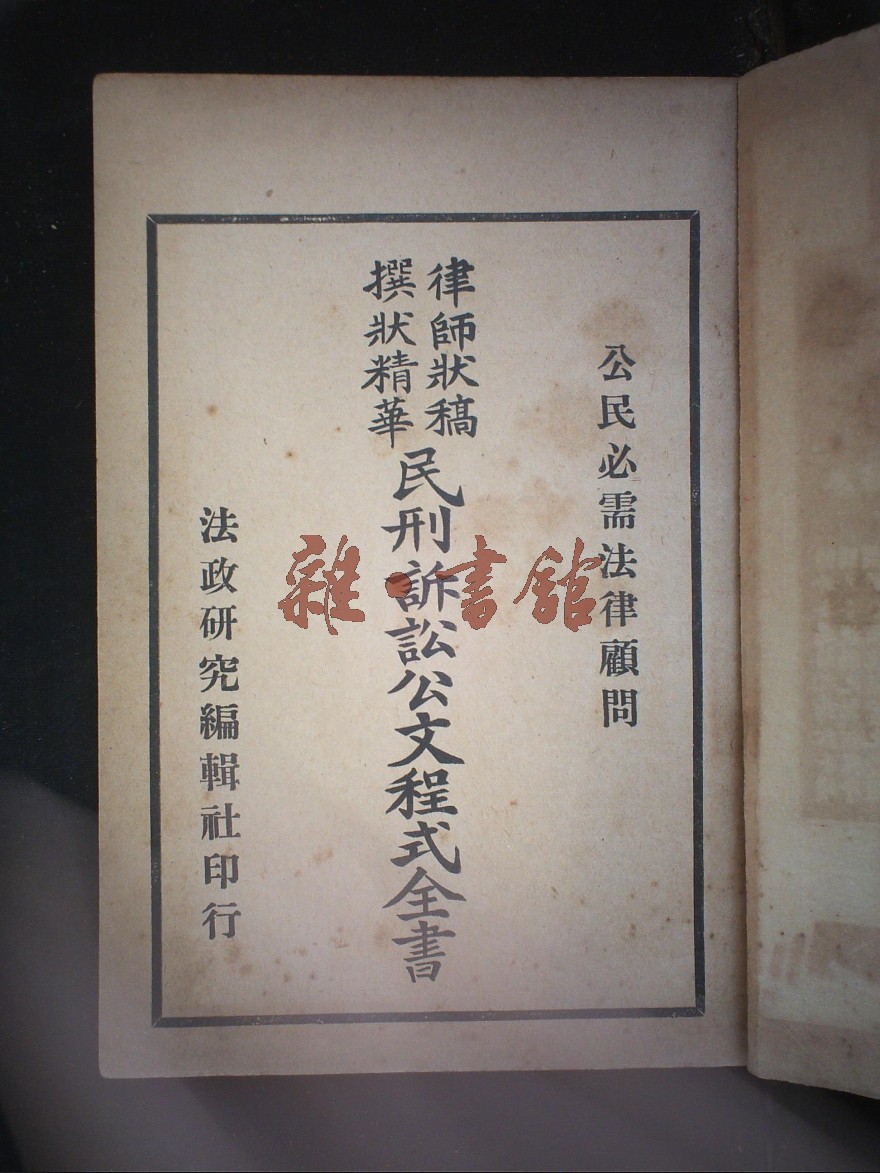 公民必需法律顧問
律師狀稿
撰狀精華
民刑訴訟公文程式全書
法政研究編輯社印行
雜·書館